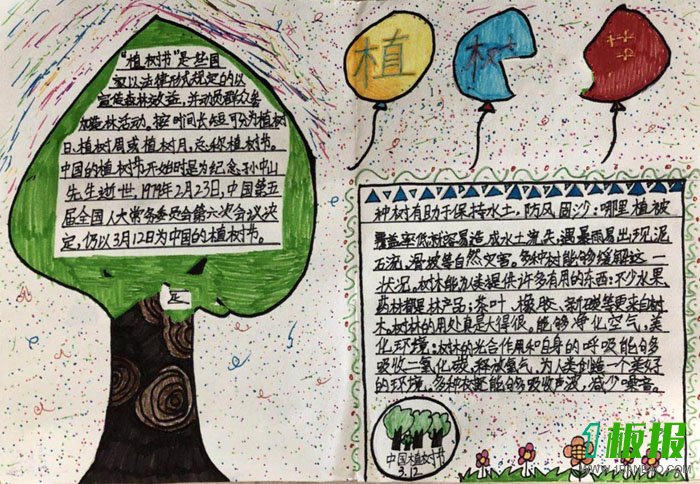 "植树节"是些国
家以法律形式规定的以
宣传森林效益，并动员群众参
加造林活动。按时间长短可分为植树
日、植树周或植树月，总称植树节。
中国的植树节开始时是为纪念孙中山
先生逝世，1979年2月23日，中国第五
届全国人大常务委员会第六次会议决
定，仍以3月12日为中国的植树节。
植
树
种树有助于保持水土，防风固沙：哪里植被
覆盖率低就容易造成水土流失，遇暴雨易出现泥
石流、滑坡等自然灾害。多种树能够缓解这一
状况。树木能为人类提供许多有用的东西：不少水果
药材都是林产品；茶叶、橡胶、新碳等更来自树
木。树林的用处真是大得很。能够净化空气，美
化环境：树林的光合作用和自身的呼吸能够
吸收二氧化碳，释放氧气，为人类创造一个美好
的环境，多种树还能够吸收声波，减少噪音。
中国植树节
3.12
板报